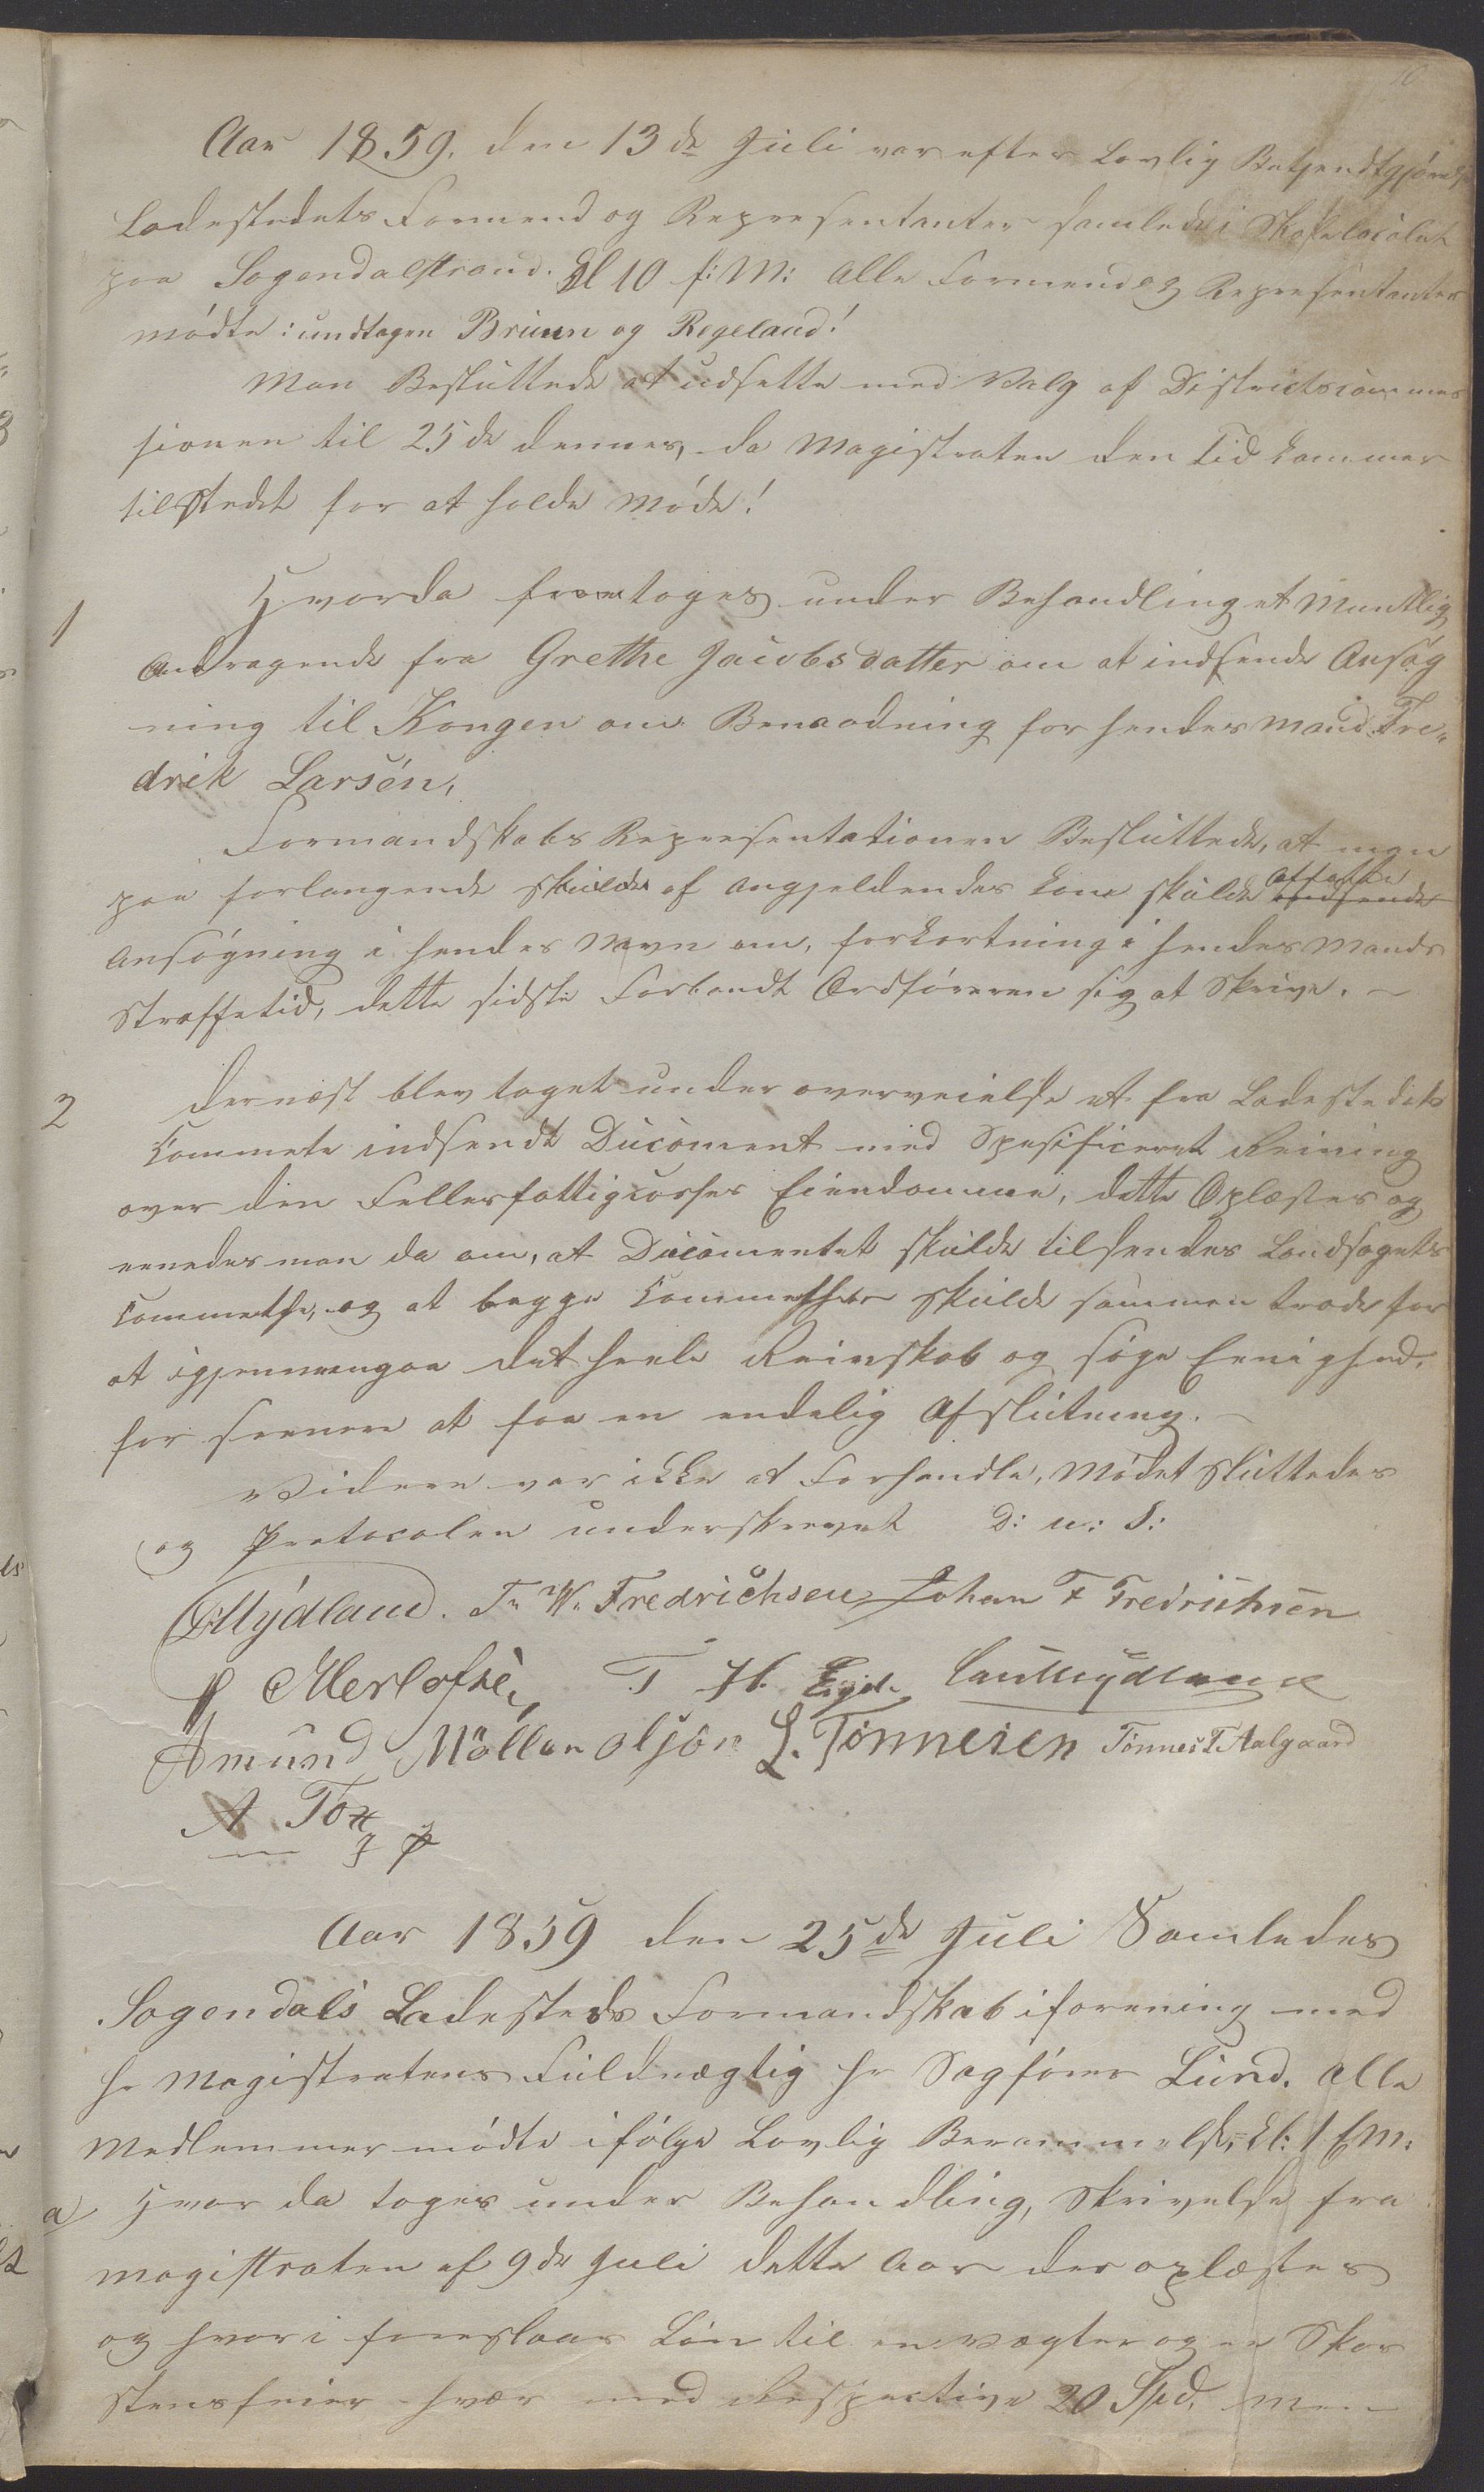 10
Aar 1859. den 13de Juli var efter Lovlig Bekjendtgjørelse
Ladestedets Formend og Representanter samlede i Skolelocalet
paa Sogendalstrand. Kl 10 f: M: Alle Formend og Representanter
mødte: undtagen Bruun og Regeland!
Man Besluttede at udsette med Valg af Districtscommis
sionen til 25de dennes, da Magistraten den Tid kommer
tilstedet for at holde Møde!
1 Hvorda fremtoges under Behandling et Muntlig
Andragende fra Grethe Jacobsdatter om at indsende Ansøg
ning til Kongen om Benaadning for hendes mand Fre„
drik Larsen,
Formandskabs Representationen Besluttede, at man
paa forlangende skulde af angjeldendes kone skulde affatte indsende
Ansøgning i hendes Navn om, forkortning i hendes Mands
Straffetid, dette sidste Forbandt Ordføreren sig at Skrive. –
2 Dernæst blev taget under overveielse et fra Ladestedets
Commete indsendt Document med Spesificeret Reining
over den Fellesfattigcasses Eiendomme, dette Oplæstes og
enedes man da om, at Documentet skulde tilsendes Landsognets
Committe, og at begge Committeer skulde sammen træde for
at igjennemgaa det heele Reinskab og søge Eenighed,
for seenere at faa en endelig Afslutning. –
Videre var ikke at Forhandle, Mødet sluttedes
og Protocolen underskrevet D: u: S:
Mydland. Fr W. Fredrichsen Johan F Fredrichsen
P Merlofsen T H. Egde Mydland
Amund Möller Olson L. Tönnesen Tönnes T. Aalgaard
A Torp
Aar 1859 den 25de Juli Samledes
Sogendals Ladesteds Formandskab iforening med
Hr Magistratens Fuldmægtig Hr Sagfører Lund. Alle
Medlemmer mødte ifølge Lovlig Berammelse, Kl: 1 EM:
a Hvor da toges under Behandling, Skrivelse fra
Magistraten af 9de Juli dette Aar der oplæstes
og hvori foreslaar Løn til en vægter og en Skor
stensfeier hver med Respective 20 Spd. Men